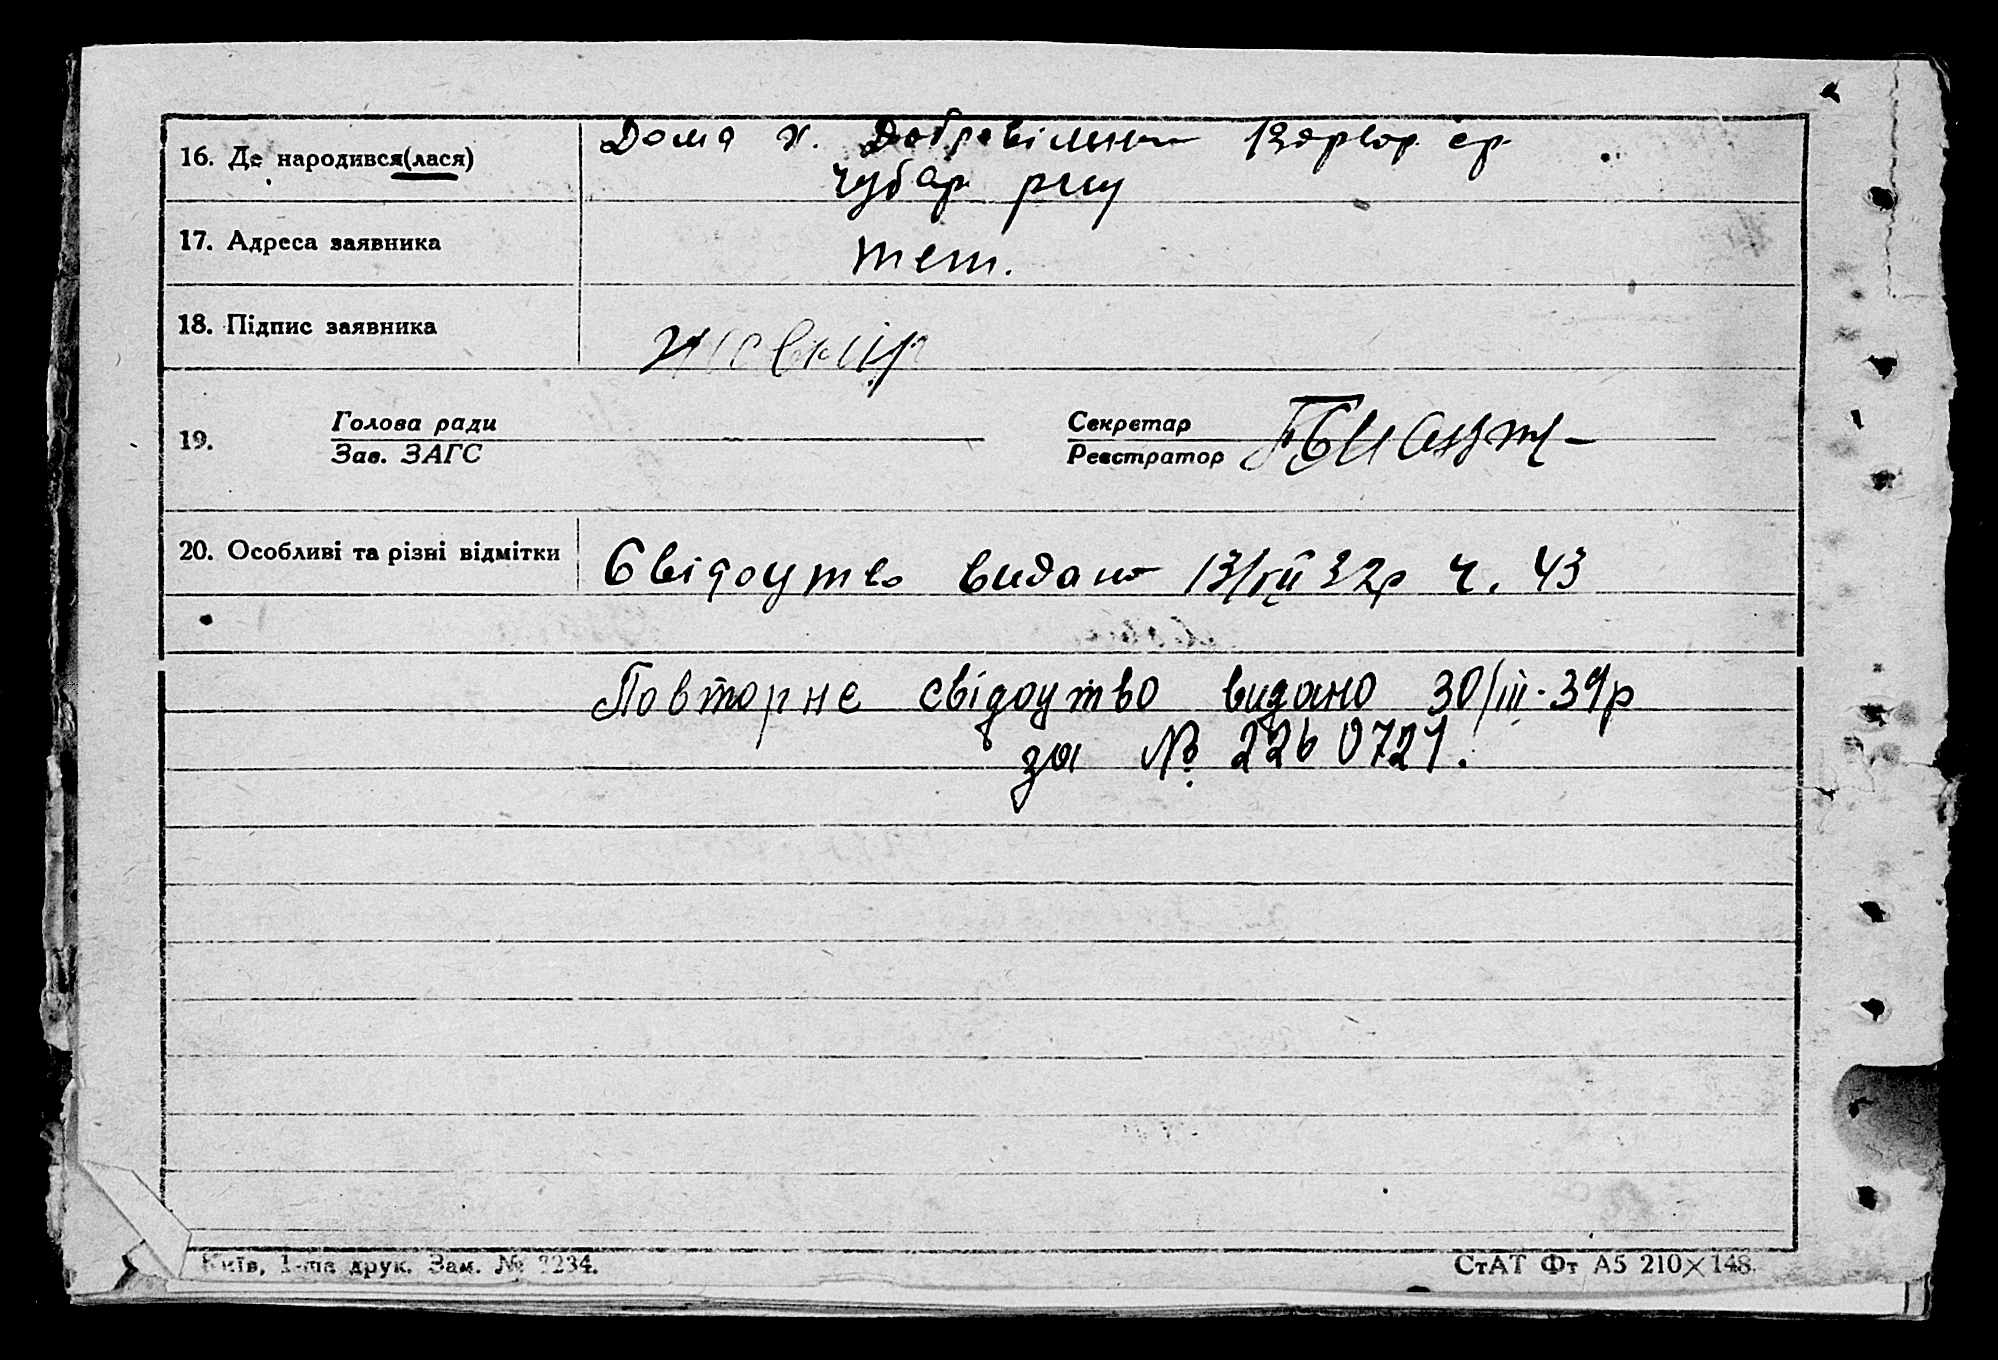 16. Де народився(лася) Дома х. Добровільни
Чубар р-ну
17. Адреса заявника теж.
18. Підпис заявника
19. Голова ради
Зав. ЗАГС
Секретар
Реєстратор
20. Особливі та різні відмітки Свідоцтво видано 13/XII 32р ч. 43
Повторне свідоцтво видано 30/III-39р
за № 2260721.
Київ, 1-ша друк. Зам. № 7234.
СтАТ Фт А5 210×148.